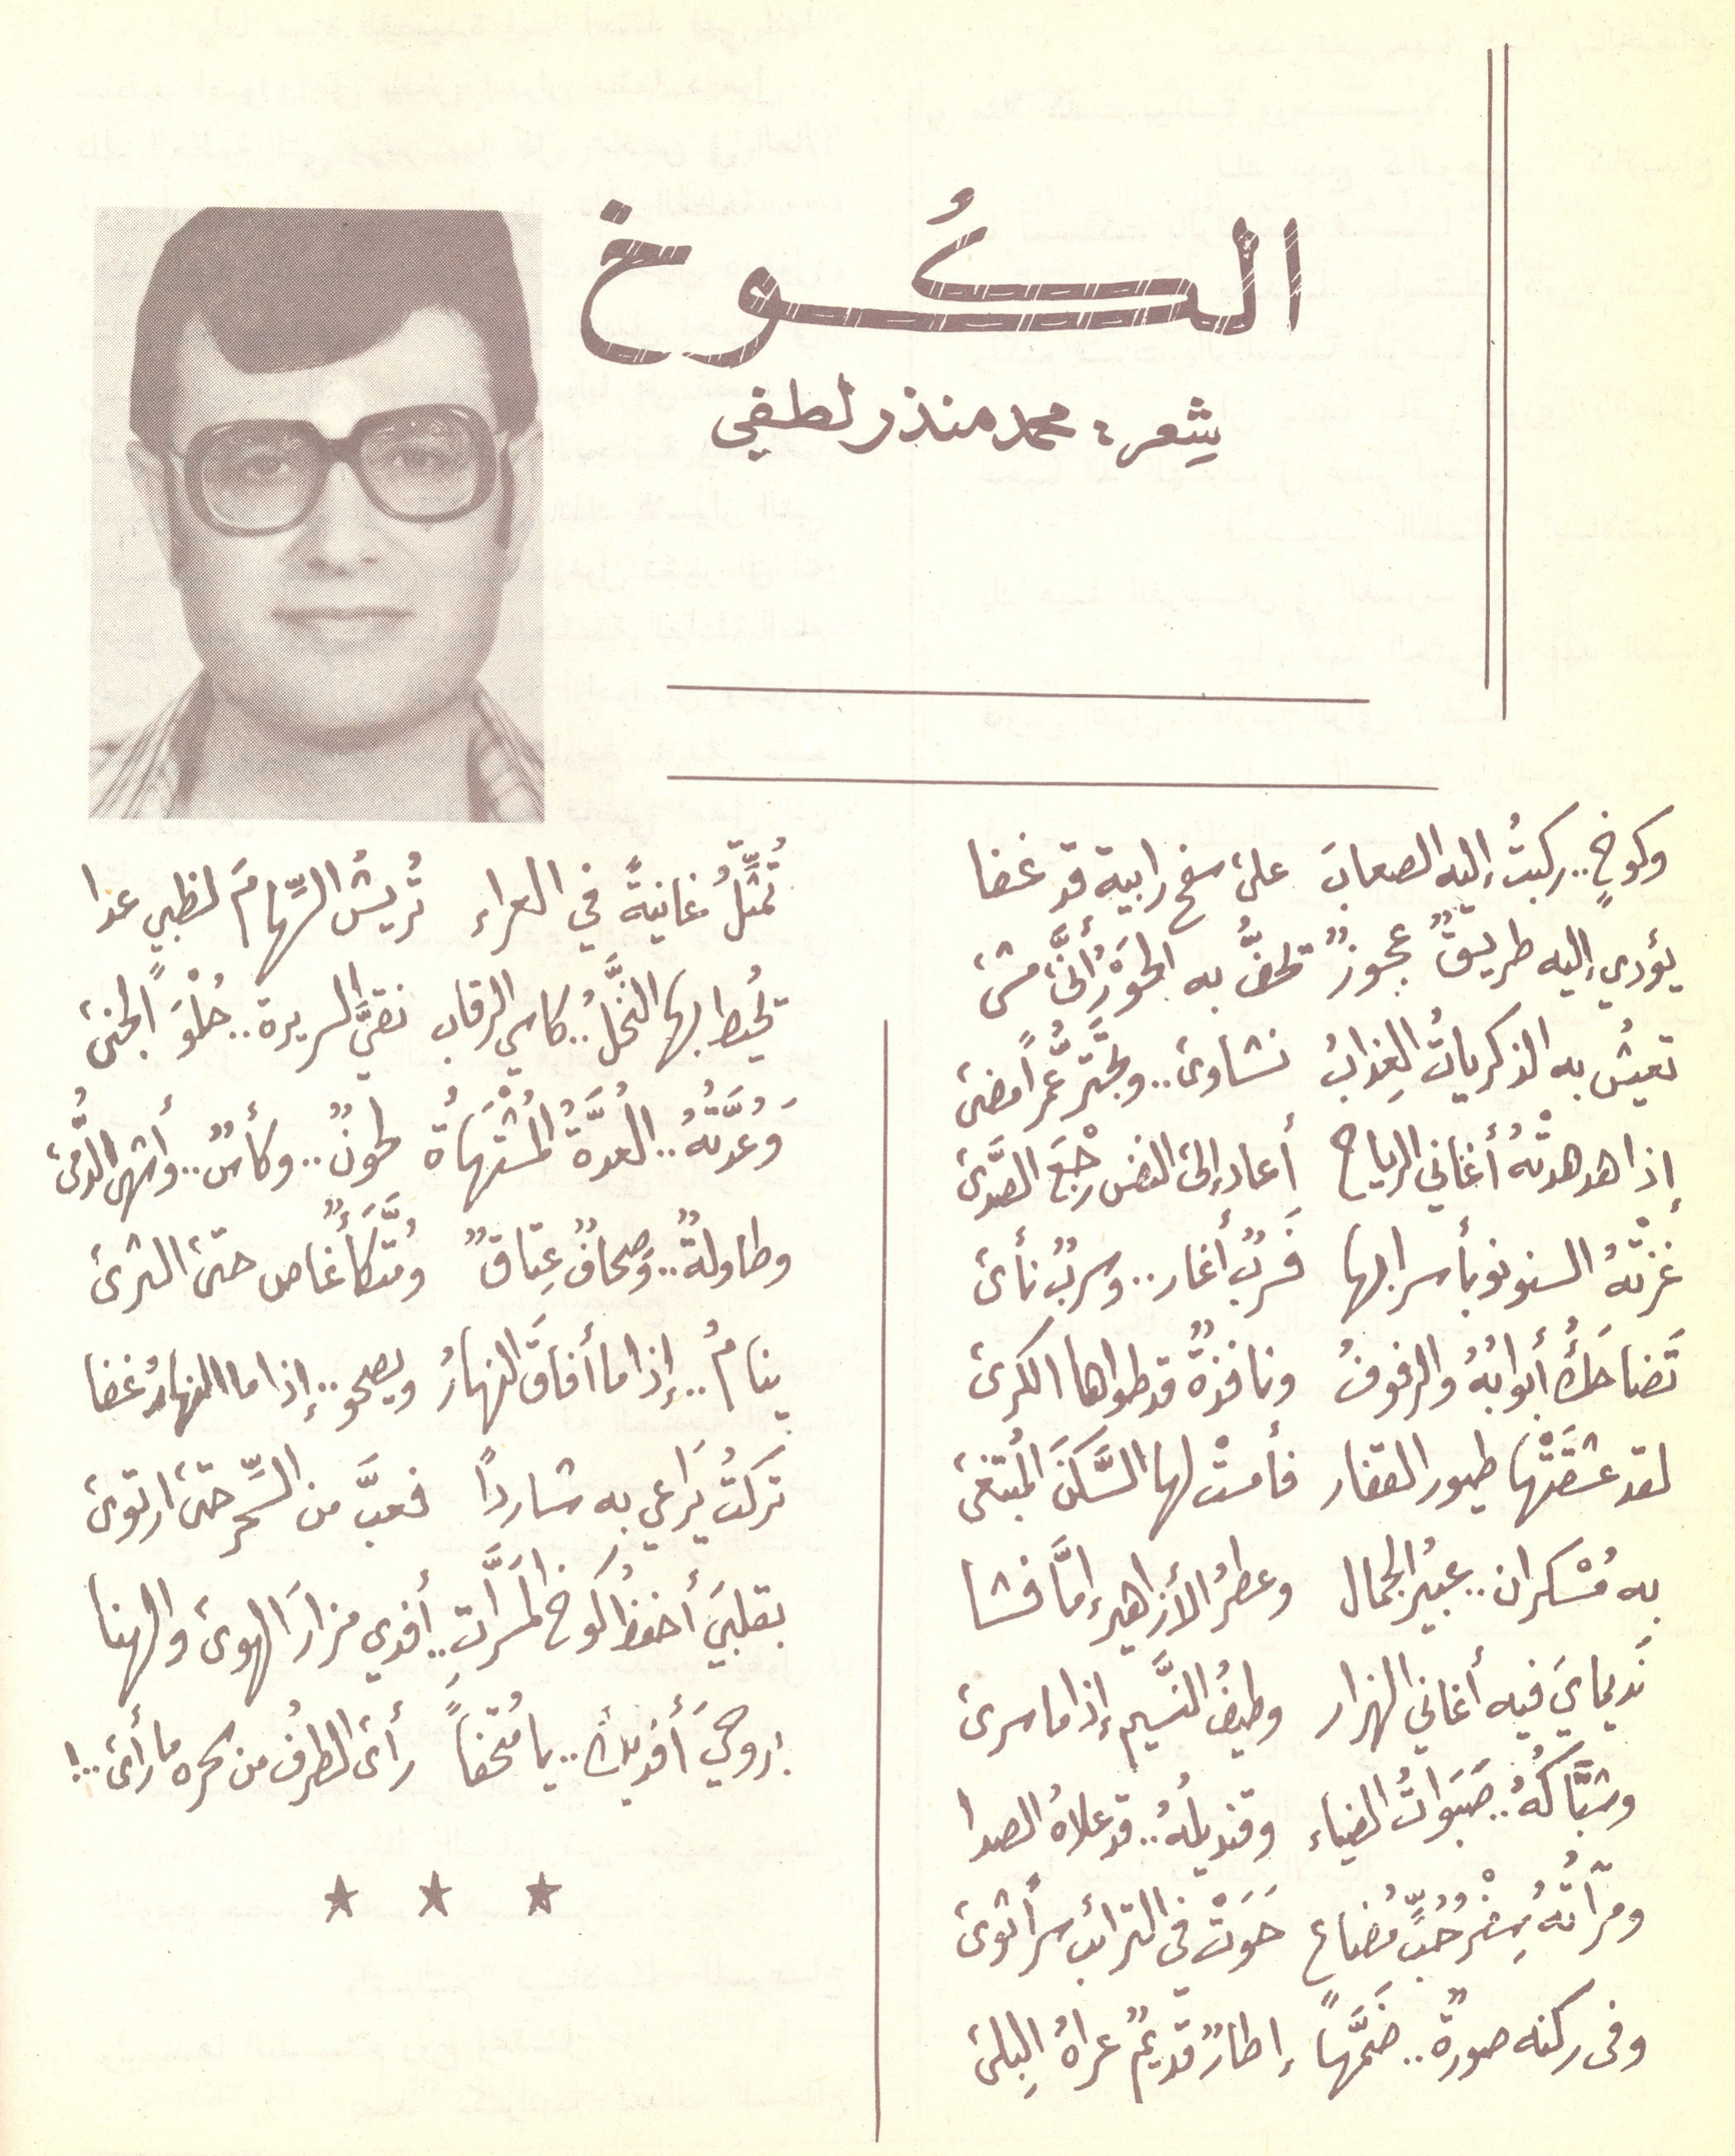 الكُوخ
شِعر : محمد منذر لطفي
وكوخٍ .. ركبتُ إليه الصعابَ على سفح رابية قد غفا
يؤدي إليه طريقٌ عجوزٌ تحفُّ به الحَوْرُ أنَّى مشى
تعيشُ به الذكرياتُ العِذابُ نشاوى .. وتجترُّ عمراً مضى
إذا هدهدتْهُ أغاني الرياح أعاد إلى النفس رجْعَ الصَّدى
غزتْهُ السنونو بأسرابها فَسِربٌ أغار .. وسربٌ نأى
تَضاحَكُ أبوابُهُ والرفوفُ ونافذةٌ قد طواها الكرى
لقد عشقَتْها طيور القفار فأمستْ لها السَّكَنَ المُبتغى
به مُسْكران .. عبيرُ الجمال وعطرُ الأزاهير إمَّا فشا
نَديمايَ فيه أغاني الهزار وطيفُ النَّسيم إذا ما سرى
وشبَّاكُهُ .. صَبَواتُ الضياء وقنديلُهُ .. قد علاهُ الصدا
ومرآتُهُ سِفْرُ حُبٍّ مُضاع حَوَتْ في الترائب سراً ثوى
وفى ركنه صورةٌ .. ضَمَّها إطارٌ قديمٌ عراهُ البِلى
تُمثِّلُ غانيةً في العراء تُريشُ السِّهامَ لظبيٍ عدا
تُحيط بها النَّخلُ .. كاسي الرقاب نقيَّ السريرة .. حُلْوَ الجنى
وَعُدَّتُهُ .. العُدَّةُ المُشْتَهَاةُ لحونٌ .. وكأسٌ .. وأشهى الدُّمى
وطاولةٌ .. وَصِحافٌ عِتاقٌ ومُتَّكَأٌ غاص حتى الثرى
ينامُ .. إذا ما أفاقَ النهارُ ويصحو .. إذا ما النهارُ غفا
تركتُ يَراعي به شارداً فعبَّ من السِّحر حتى ارتوى
بقلبيَ أحفظُ كوخ المَسَرَّاتِ .. أفدي مزارَ الهوى والهنا
بروحيَ أفديكَ .. يا مُتحفاً رأى الطرفُ من سحره ما رأى .. !